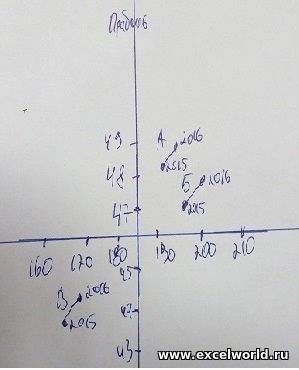 Прибыль
49 А 2016
48 2015
Б 2016
47 2015
160 170 180 190 200 210
45
В 2016
2015
43
www.excelworld.ru